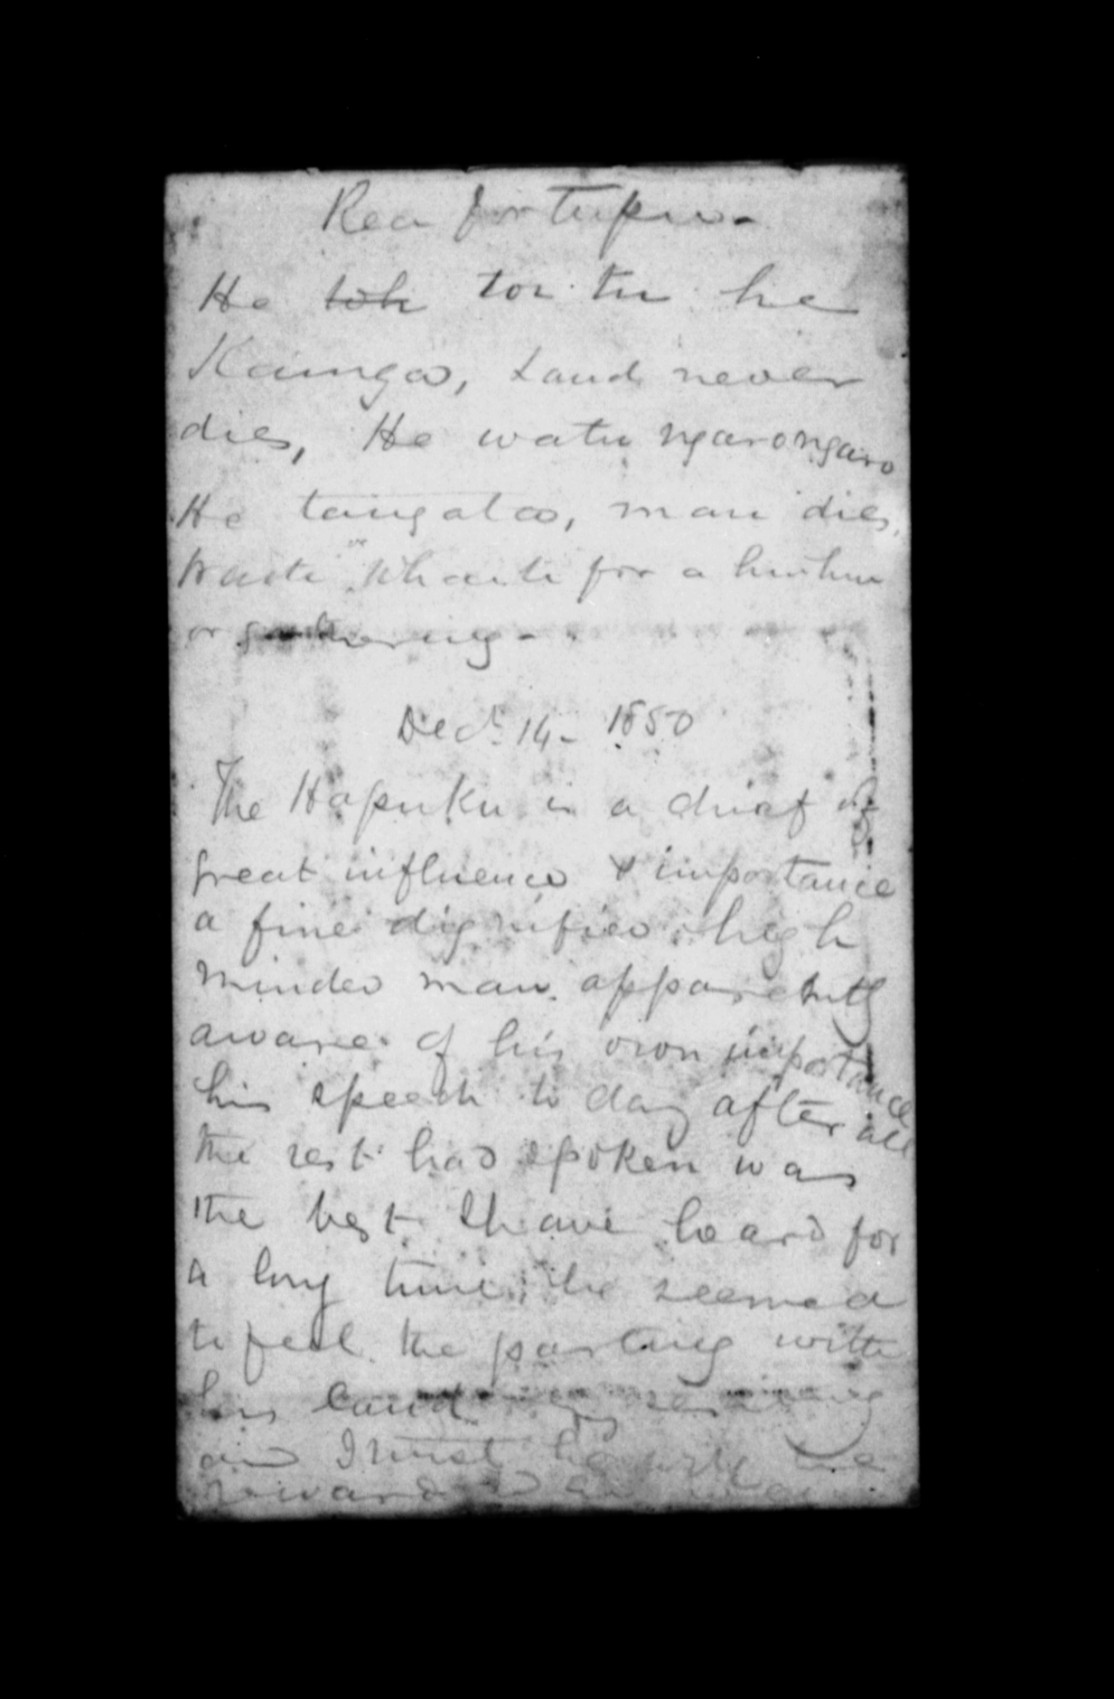 Rea for tupu -
He toh toi tu he
Kainga, Land never
dies, He watu ngarongaro
He tangata, man dies,
Waiti or Whaiti for a huihui
or gathering -
Decr. 14 - 1850
The Hapuku is a chief of
great influence & importance
a fine dignified high
minded man apparently
aware of his own importance
his speech to day after all
the rest had spoken was
the best I have heard for
a long time, he seemed
to feel the parting with
his land
and I trust he will be
reward